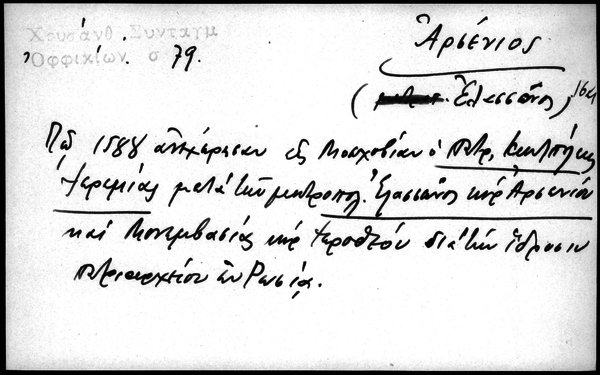 Χρυσάνθ. Συνταγμ
Ὀφφικίων. σ 79.
Ἀρσένιος
(Ἐλεσσῶνος) 164
Τῷ 1588 ἀπεχώρησαν εἰς Μοσχοβίαν ὁ πτρ. Κωνπόλεως
Ἱερεμίας μετὰ τῶν μητροπολ. Ἐλασσῶνος κὺρ Ἀρσενίου
καὶ Μονεμβασίας κὺρ Ἱεροθέου διὰ τὴν ἵδρυσιν
πτριαρχείου ἐν Ρωσίᾳ.